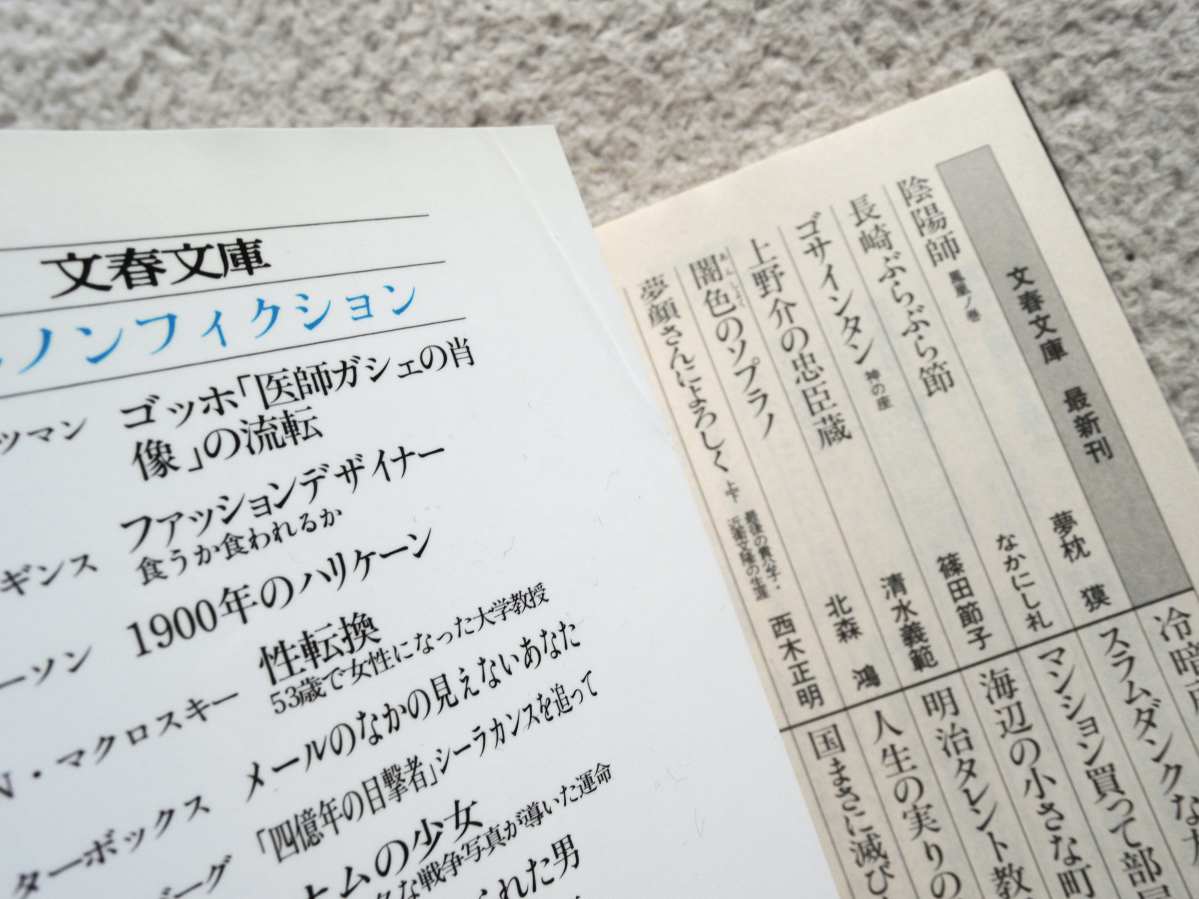 文春文庫
ノンフィクション
ツマン
ゴッホ「医師ガシェの肖
像」の流転
ギンス
ファッションデザイナー
食うか食われるか
ーソン
1900年のハリケーン
N・マクロスキー
性転換
53歳で女性になった大学教授
ターボックス
メールのなかの見えないあなた
バーグ
「四億年の目撃者」シーラカンスを追って
ナムの少女
な戦争写真が導いた運命
れた男
文春文庫 最新刊
陰陽師 鳳凰ノ巻 夢枕 獏
長崎ぶらぶら節 なかにし礼
ゴサインタン 神の座 篠田節子
上野介の忠臣蔵 清水義範
闇色のソプラノ 北森 鴻
あんしょく
夢顔さんによろしく 上下 最後の貴公子・近衛文隆の生涯 西木正明
冷暗
スラムダンクな
マンション買って部
海辺の小さな町
明治タレント教
人生の実りの
国まさに滅び